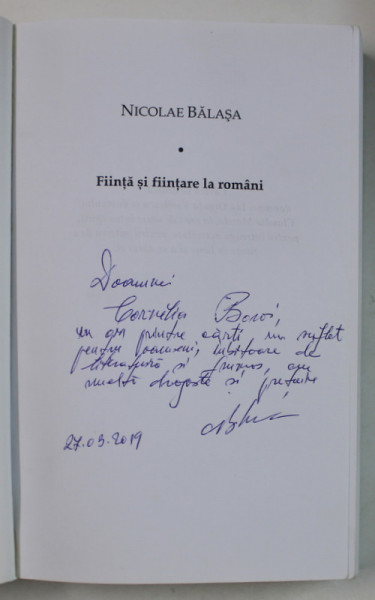 NICOLAE BĂLAȘA
•
Ființă și ființare la români
Doamnei
Cornelia Boroi,
un om printre cărți, un suflet
pentru oameni, iubitoare de
literatură și frumos, cu
multă dragoste și prețuire
27.03.2019